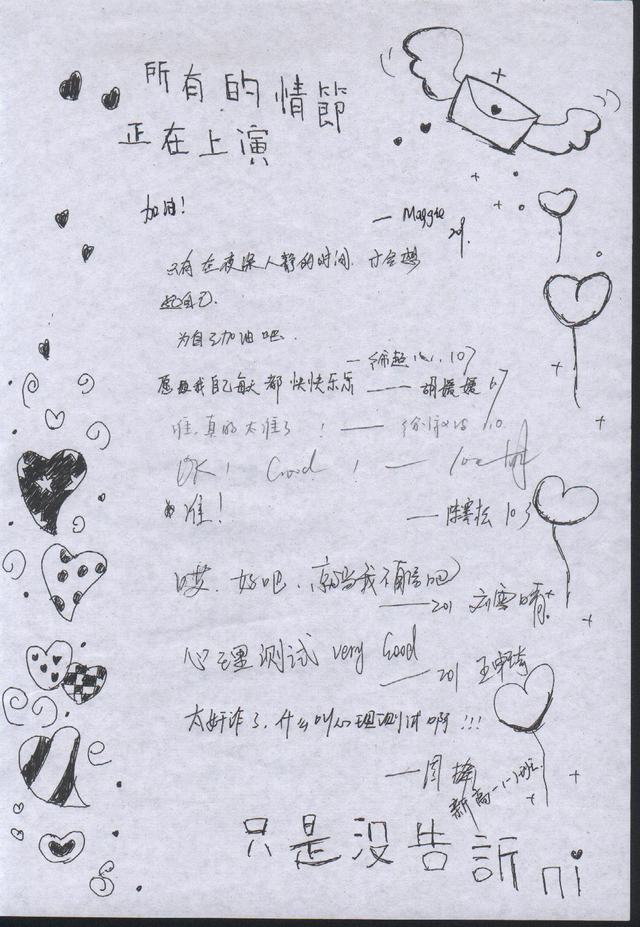 所有的情節
正在上演
加油!
— Maggie
201.
只有在夜深人静的时间,才会想
起自己.
为自己加油吧.
—徐超 107
愿 我自己每天都快快乐乐 —— 胡媛媛 107
准,真的太准了 ! ——
OK! Good ! —
准!
—陈赛 103
哎,好吧,就当我不 吧
——201 刘雪晴
心理测试 very Good
——201 王
太奸诈了,什么叫心理测试啊!!!
—周
新高一(一)班.
只是没告訴 ni